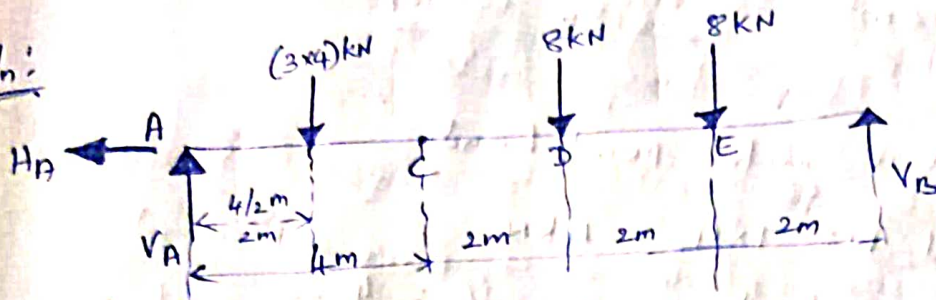 n:
(3×4)kN
8kN
8kN
A
H_A
C
D
E
V_B
4/2 m
2m
V_A
4m
2m
2m
2m